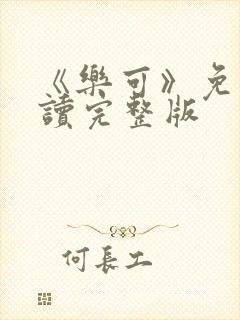 《樂可》免
讀完整版
何長工